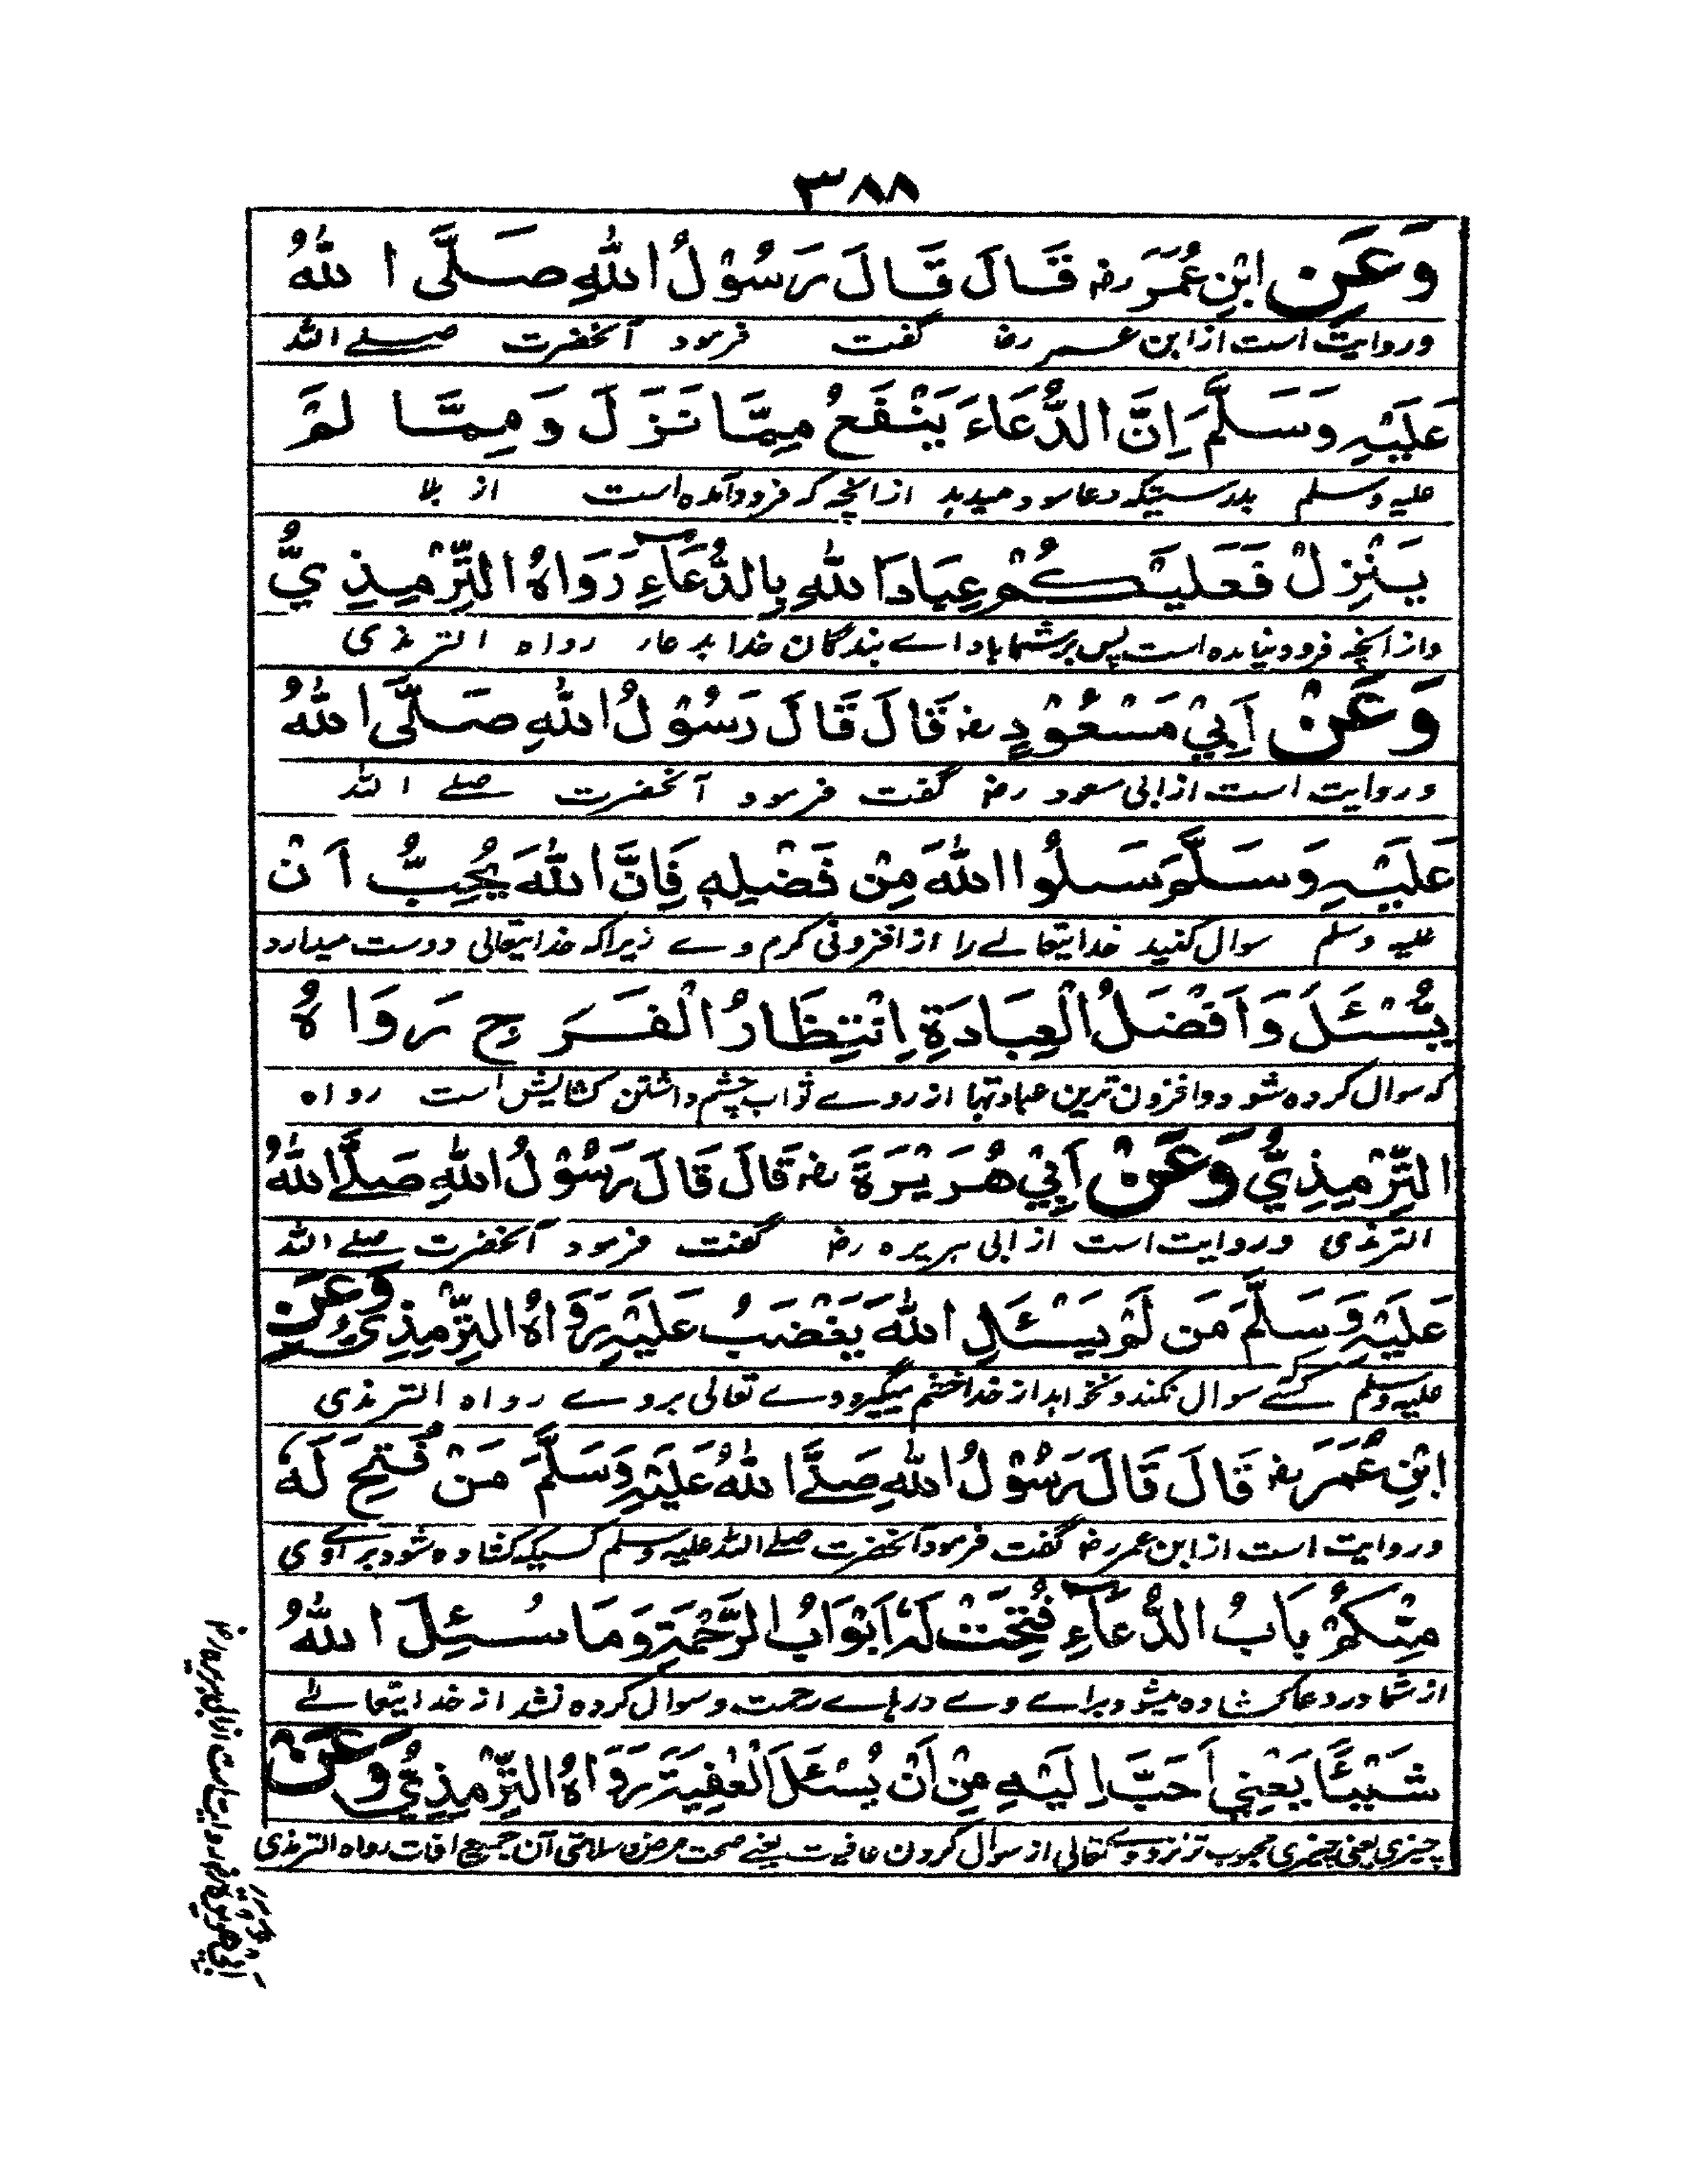 ٣٨٨
وَعَنِ ابْنِ عُمَرَ رضہ قَالَ قَالَ رَسُوْلُ اللهِ صَلَّى اللهُ
و روایت است از ابن عمر رضہ گفت فرمود آنحضرت صلے اللہ
عَلَيْهِ وَسَلَّمَ اِنَّ الدُّعَاءَ يَنْفَعُ مِمَّا نَزَلَ وَمِمَّا لَمْ
علیہ وسلم بدرستیکہ دعا سود میدہد ازانچہ کہ فرود آمدہ است از بلا
يَنْزِلْ فَعَلَيْكُمْ عِبَادَ اللهِ بِالدُّعَاءِ رَوَاهُ التِّرْمِذِيُّ
و ازانچہ فرود نیامدہ است پس بر شما باد اے بندگان خدا بدعا رواہ الترمذی
وَعَنْ اَبِيْ مَسْعُوْدٍ رضہ قَالَ قَالَ رَسُوْلُ اللهِ صَلَّى اللهُ
و روایت است از ابی مسعود رضہ گفت فرمود آنحضرت صلے اللہ
عَلَيْهِ وَسَلَّمَ سَلُوا اللهَ مِنْ فَضْلِهٖ فَاِنَّ اللهَ يُحِبُّ اَنْ
علیہ وسلم سوال کنید خدایتعالے را از افزونی کرم وے زیراکہ خدایتعالی دوست میدارد
يُّسْئَلَ وَاَفْضَلُ الْعِبَادَةِ اِنْتِظَارُ الْفَرَجِ رَوَاهُ
کہ سوال کردہ شود و افزون ترین عبادتہا از روے ثواب چشم داشتن کشایش است رواہ
التِّرْمِذِيُّ وَعَنْ اَبِيْ هُرَيْرَةَ رضہ قَالَ قَالَ رَسُوْلُ اللهِ صَلَّے اللهُ
الترمذی و روایت است از ابی ہریرہ رضہ گفت فرمود آنحضرت صلے اللہ
عَلَيْهِ وَسَلَّمَ مَن لَمْ يَسْئَلِ اللهَ يَغْضَبُ عَلَيْهِ رَوَاهُ التِّرْمِذِيُّ وَعَنِ
علیہ وسلم کسے سوال نکند و نخواہد از خدا خشم میگیرد وے تعالی بروے رواہ الترمذی
ابْنِ عُمَرَ رضہ قَالَ قَالَ رَسُوْلُ اللهِ صَلَّے اللهُ عَلَيْهِ وَسَلَّمَ مَنْ فُتِحَ لَهٗ
و روایت است از ابن عمر رضہ گفت فرمود آنحضرت صلے اللہ علیہ وسلم کسیکہ کشادہ شود براے وی
مِنْكُمْ بَابُ الدُّعَاءِ فُتِحَتْ لَهٗ اَبْوَابُ الرَّحْمَةِ وَمَا سُئِلَ اللهُ
از شما در دعا کشادہ میشود براے وے درہاے رحمت و سوال کردہ نشد از خدایتعالے
شَيْئًا يَعْنِي اَحَبَّ اِلَيْهِ مِنْ اَنْ يُسْئَلَ الْعٰفِيَةَ رَوَاهُ التِّرْمِذِيُّ وَعَنْ
چیزی یعنی چیزی محبوب تر نزد وے تعالی از سوال کردن عافیت یعنے صحت مرض سلامتی آن جمیع آفات رواہ الترمذی